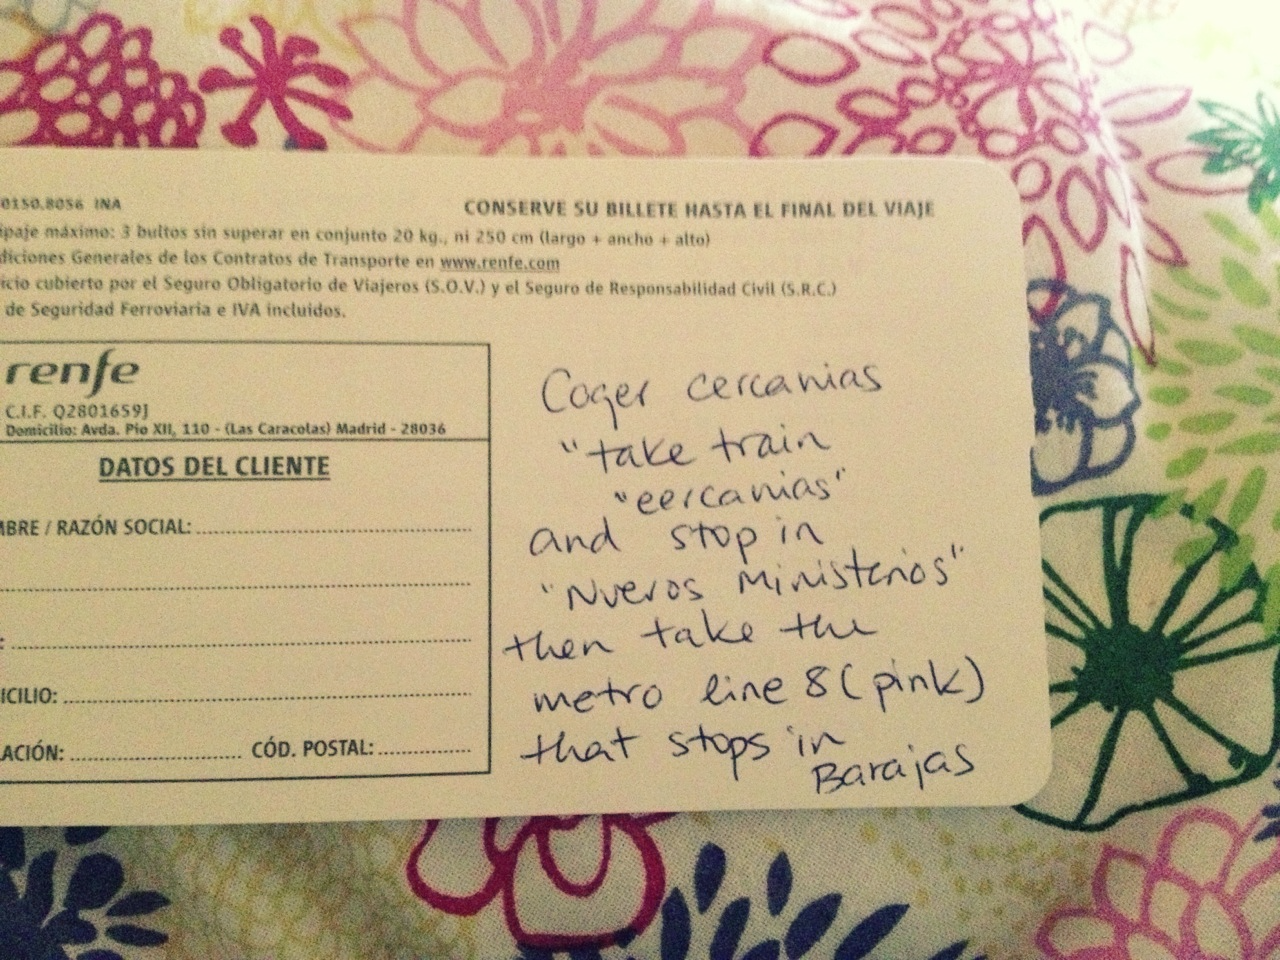 0150.8056 INA
CONSERVE SU BILLETE HASTA EL FINAL DEL VIAJE
ipaje máximo: 3 bultos sin superar en conjunto 20 kg., ni 250 cm (largo + ancho + alto)
diciones Generales de los Contratos de Transporte en www.renfe.com
icio cubierto por el Seguro Obligatorio de Viajeros (S.O.V.) y el Seguro de Responsabilidad Civil (S.R.C.)
de Seguridad Ferroviaria e IVA incluidos.
renfe
C.I.F. Q2801659J
Domicilio: Avda. Pío XII, 110 - (Las Caracolas) Madrid - 28036
DATOS DEL CLIENTE
MBRE / RAZÓN SOCIAL:
ICILIO:
ACIÓN: CÓD. POSTAL:
Coger cercanias
"take train
"cercanias"
and stop in
"Nuevos Ministerios"
then take the
metro line 8 (pink)
that stops in
Barajas